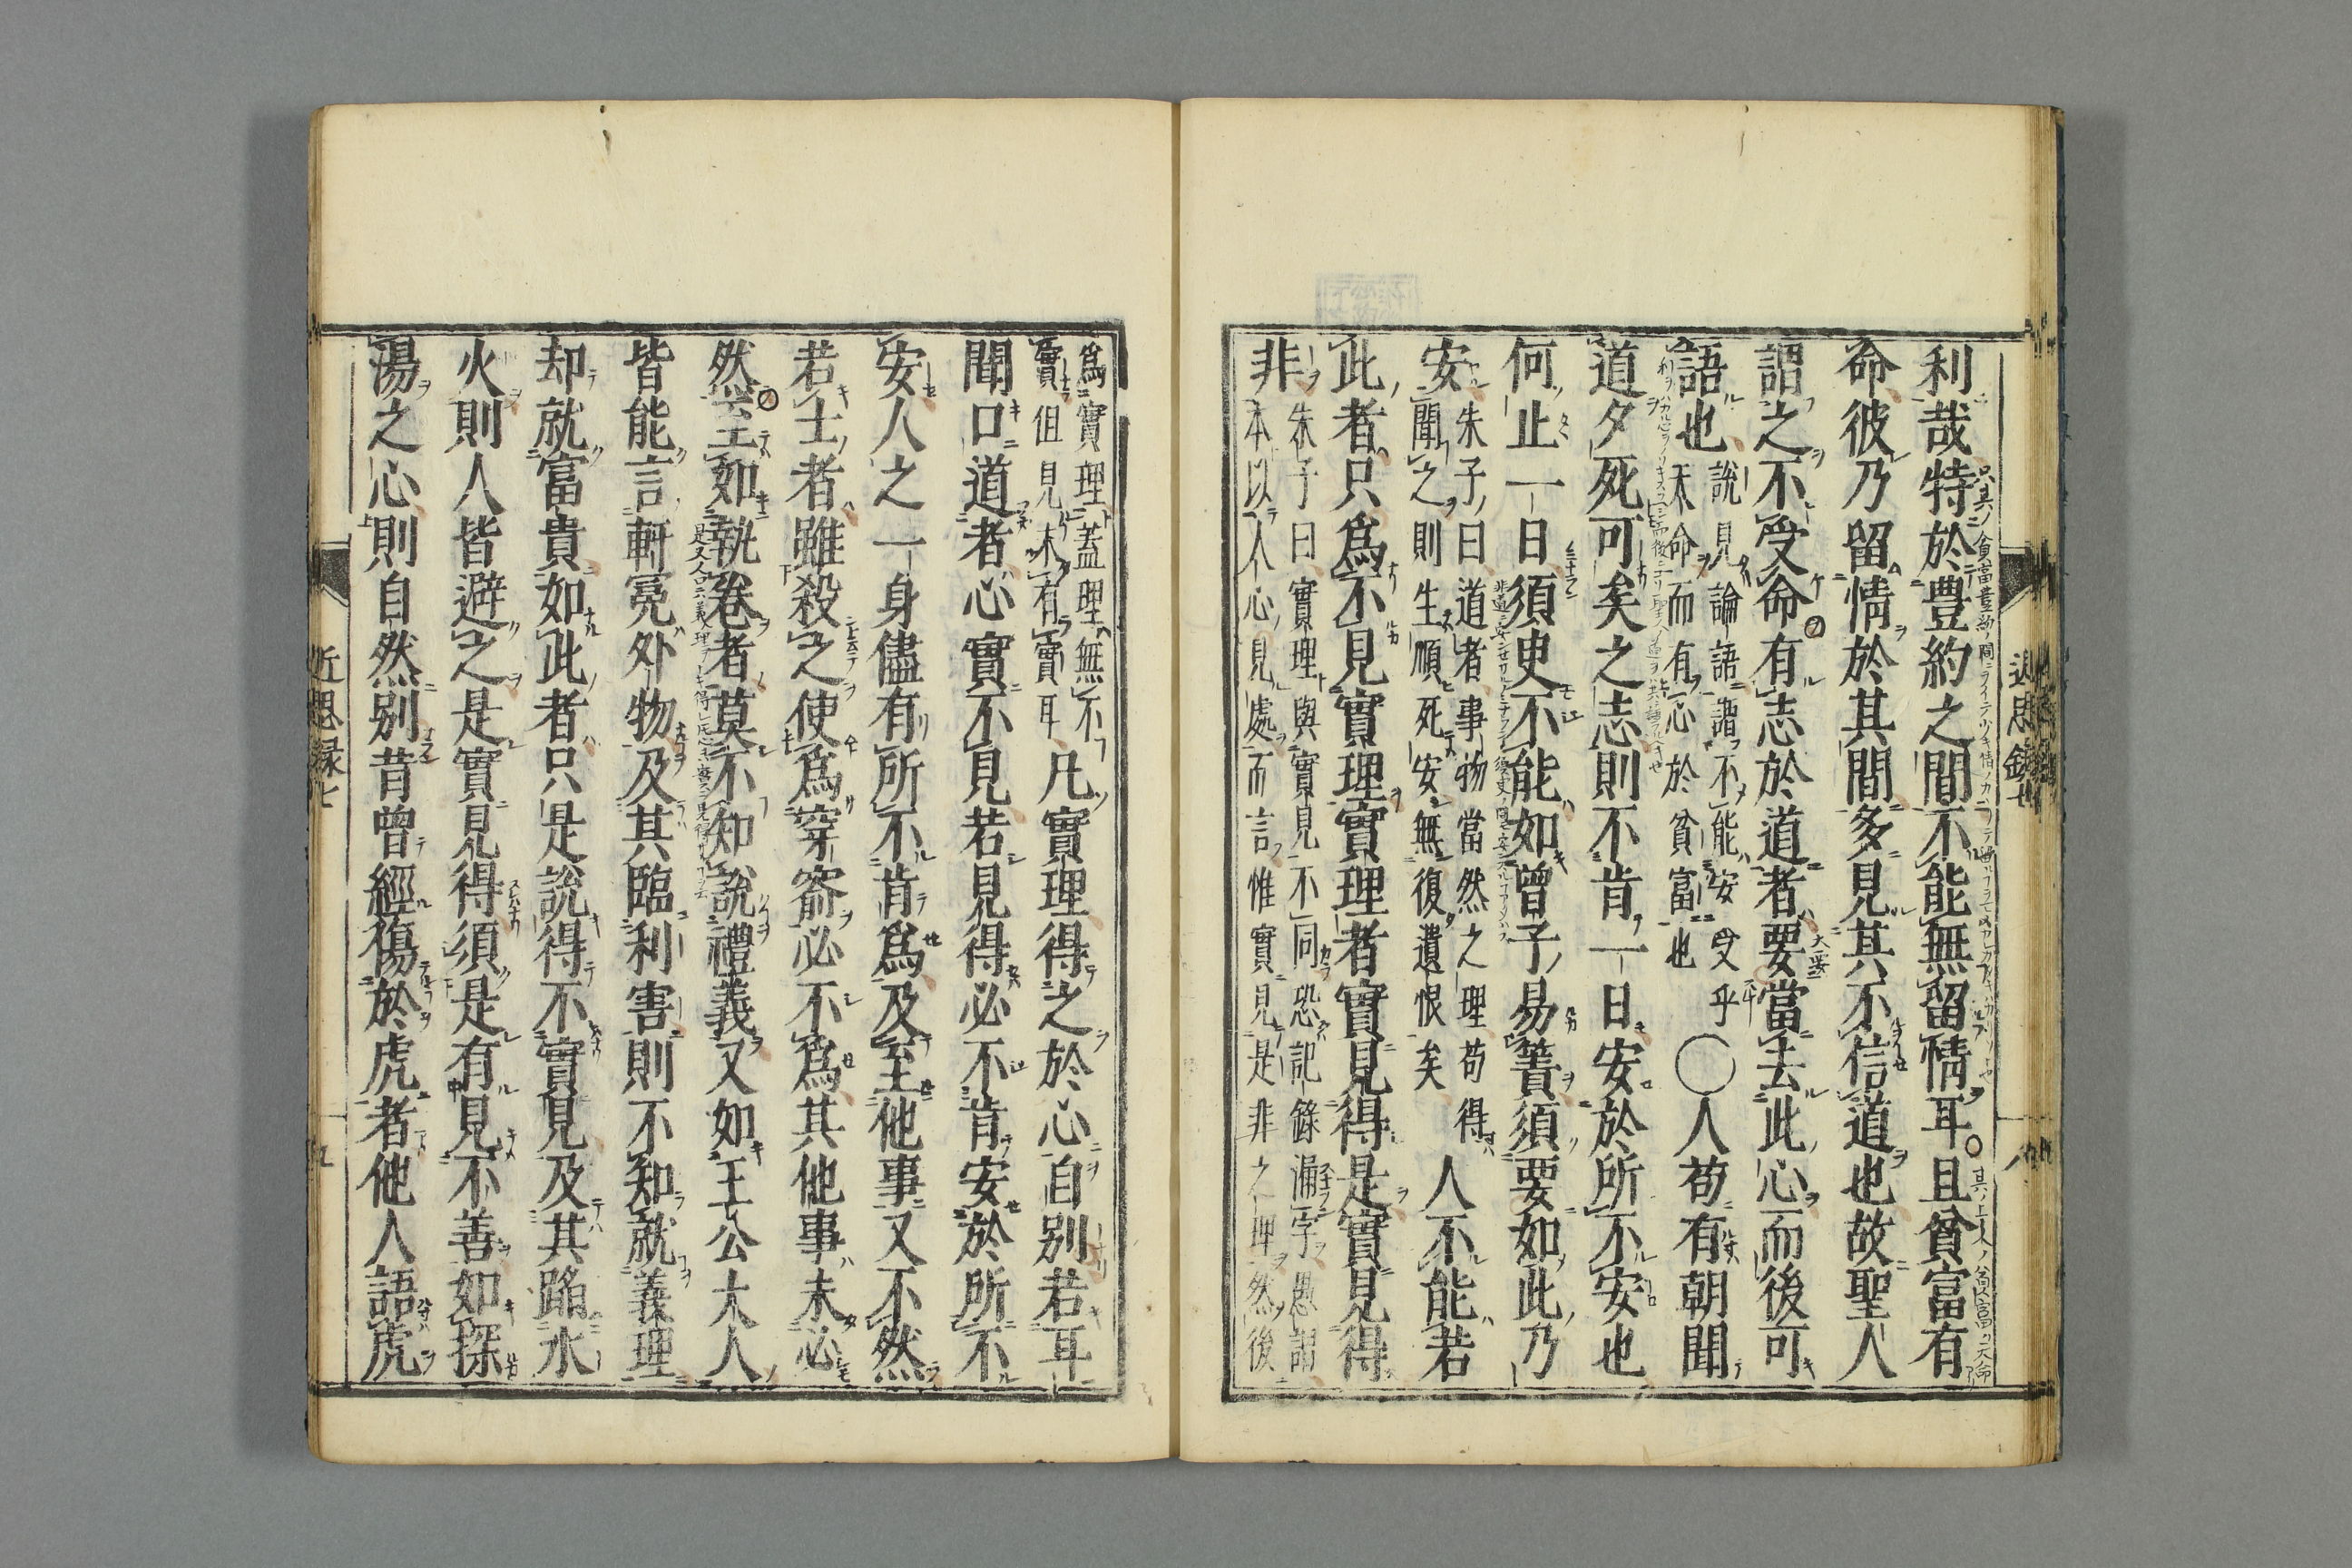 利哉特於豊約之間不能無留情耳且貧富有
命彼乃留情於其間多見其不信道也故聖人
謂之不受命有志於道者要當去此心而後可
語也
說見論語謂不能安受乎
天命而有心於貧富也
○人苟有朝聞
道夕死可矣之志則不肯一日安於所不安也
何止一日須臾不能如曾子易簀須要如此乃
安
朱子曰道者事物當然之理苟得
聞之則生順死安無復遺恨矣
人不能若
此者只爲不見實理實理者實見得是實見得
非
朱子曰實理與實見不同恐記錄漏字愚謂
本以人心見處而言惟實見是非之理然後
近思錄七
八
爲實理蓋理無不
實但見未有實耳
凡實理得之於心自別若耳
聞口道者心實不見若見得必不肯安於所不
安人之一身儘有所不肯爲及至他事又不然
若士者雖殺之使爲穿窬必不爲其他事未必
然至如執卷者莫不知說禮義又如王公大人
皆能言軒冕外物及其臨利害則不知就義理
却就富貴如此者只是說得不實見及其蹈水
火則人皆避之是實見得須是有見不善如探
湯之心則自然別昔曾經傷於虎者他人語虎
近思錄七
九